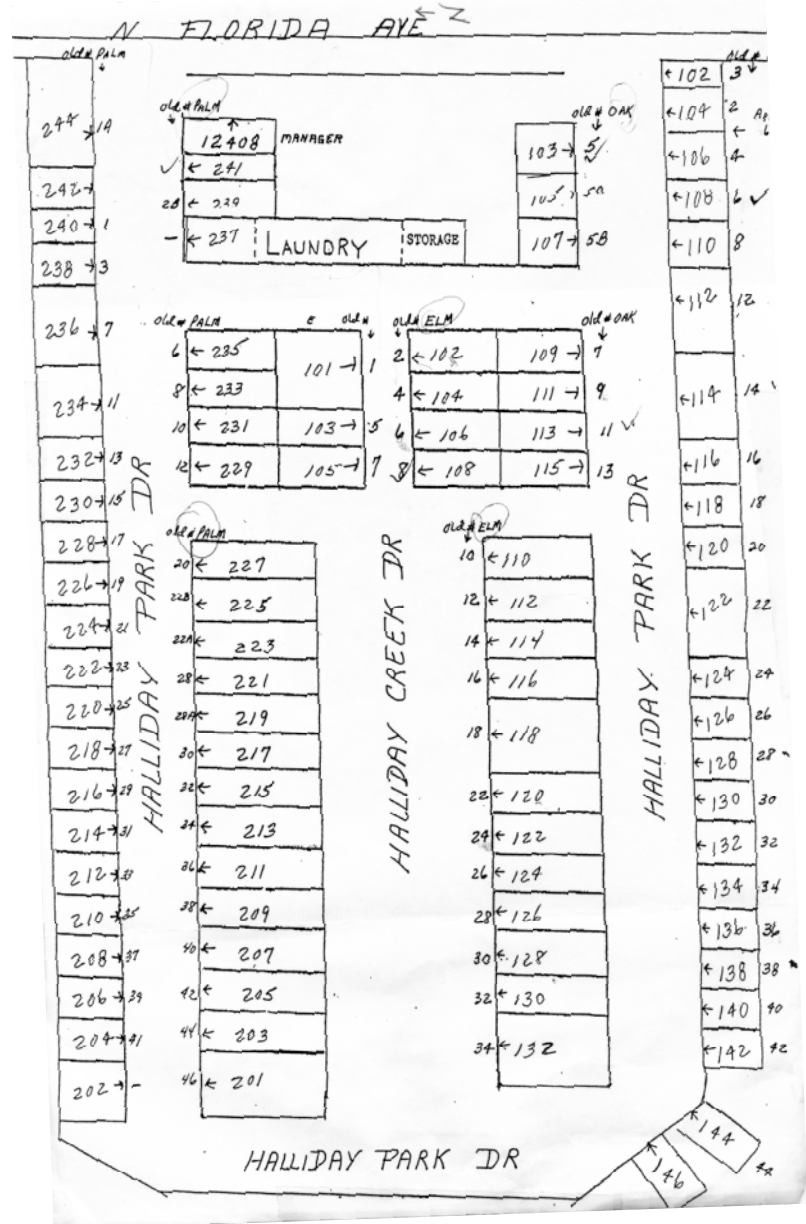 N FLORIDA AVE ← N
old # PALM
244 → 19
242 →
240 → 1
238 → 3
236 → 7
234 → 11
232 → 13
230 → 15
228 → 17
226 → 19
224 → 21
222 → 23
220 → 25
218 → 27
216 → 29
214 → 31
212 → 33
210 → 35
208 → 37
206 → 39
204 → 41
202 → -
HALLIDAY PARK DR
old # PALM
↑
12408 MANAGER
✓ ← 241
2B ← 239
- ← 237
LAUNDRY
STORAGE
old # OAK
103 → 5 ✓
105 → 5A
107 → 5B
old # PALM
6 ← 235
8 ← 233
10 ← 231
12 ← 229
E old #
101 → 1
103 → 5
105 → 7
old # ELM
2 ← 102
4 ← 104
6 ← 106
8 ← 108
old # OAK
109 → 7
111 → 9
113 → 11 ✓
115 → 13
old # PALM
20 ← 227
22B ← 225
22A ← 223
28 ← 221
28A ← 219
30 ← 217
32 ← 215
34 ← 213
36 ← 211
38 ← 209
40 ← 207
42 ← 205
44 ← 203
46 ← 201
HALLIDAY CREEK DR
old # ELM
10 ← 110
12 ← 112
14 ← 114
16 ← 116
18 ← 118
22 ← 120
24 ← 122
26 ← 124
28 ← 126
30 ← 128
32 ← 130
34 ← 132
HALLIDAY PARK DR
old #
← 102 3
← 104 2
← 106 4
← 108 6 ✓
← 110 8
← 112 12
← 114 14
← 116 16
← 118 18
← 120 20
← 122 22
← 124 24
← 126 26
← 128 28
← 130 30
← 132 32
← 134 34
← 136 36
← 138 38
← 140 40
← 142 42
144 44
146
HALLIDAY PARK DR